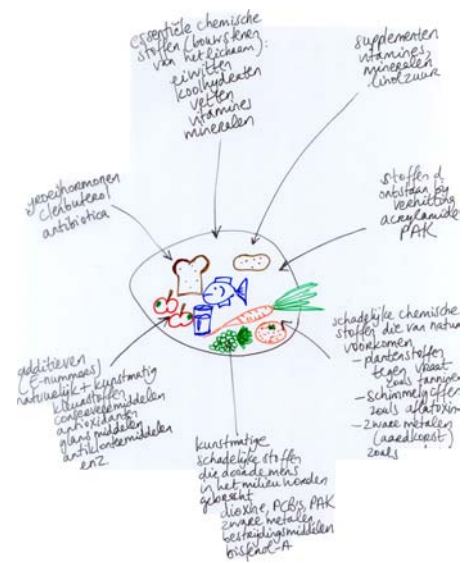 essentiële chemische
stoffen (bouwstenen
van het lichaam):
eiwitten
koolhydraten
vetten
vitamines
mineralen
supplementen
vitamines,
mineralen
linolzuur
groeihormonen
clenbuterol
antibiotica
stoffen d
ontstaan by
verhitting
acrylamide
PAK
schadelijke chemische
stoffen die van natu
voorkomen
- plantenstoffen
tegen vraat
zoals tannine
- schimmelgiffen
zoals aflatoxin
- zware metalen
(aardkorst)
zoals
additieven
(E-nummers)
natuurlijk + kunstmatig
kleurstoffen
conserveermiddelen
antioxidanten
glansmiddelen
antiklontermiddelen
enz.
kunstmatige
schadelijke stoffen
die door de mens
in het milieu worden
gebracht
dioxine, PCB's, PAK
zware metalen
bestrijdingsmiddelen
bisfenol-A